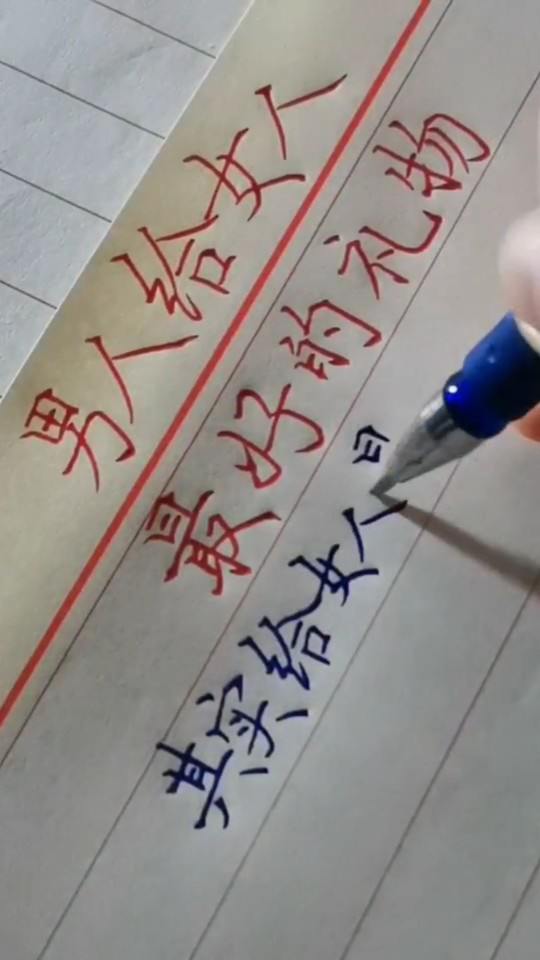 男人给女人
最好的礼物
其实给女人